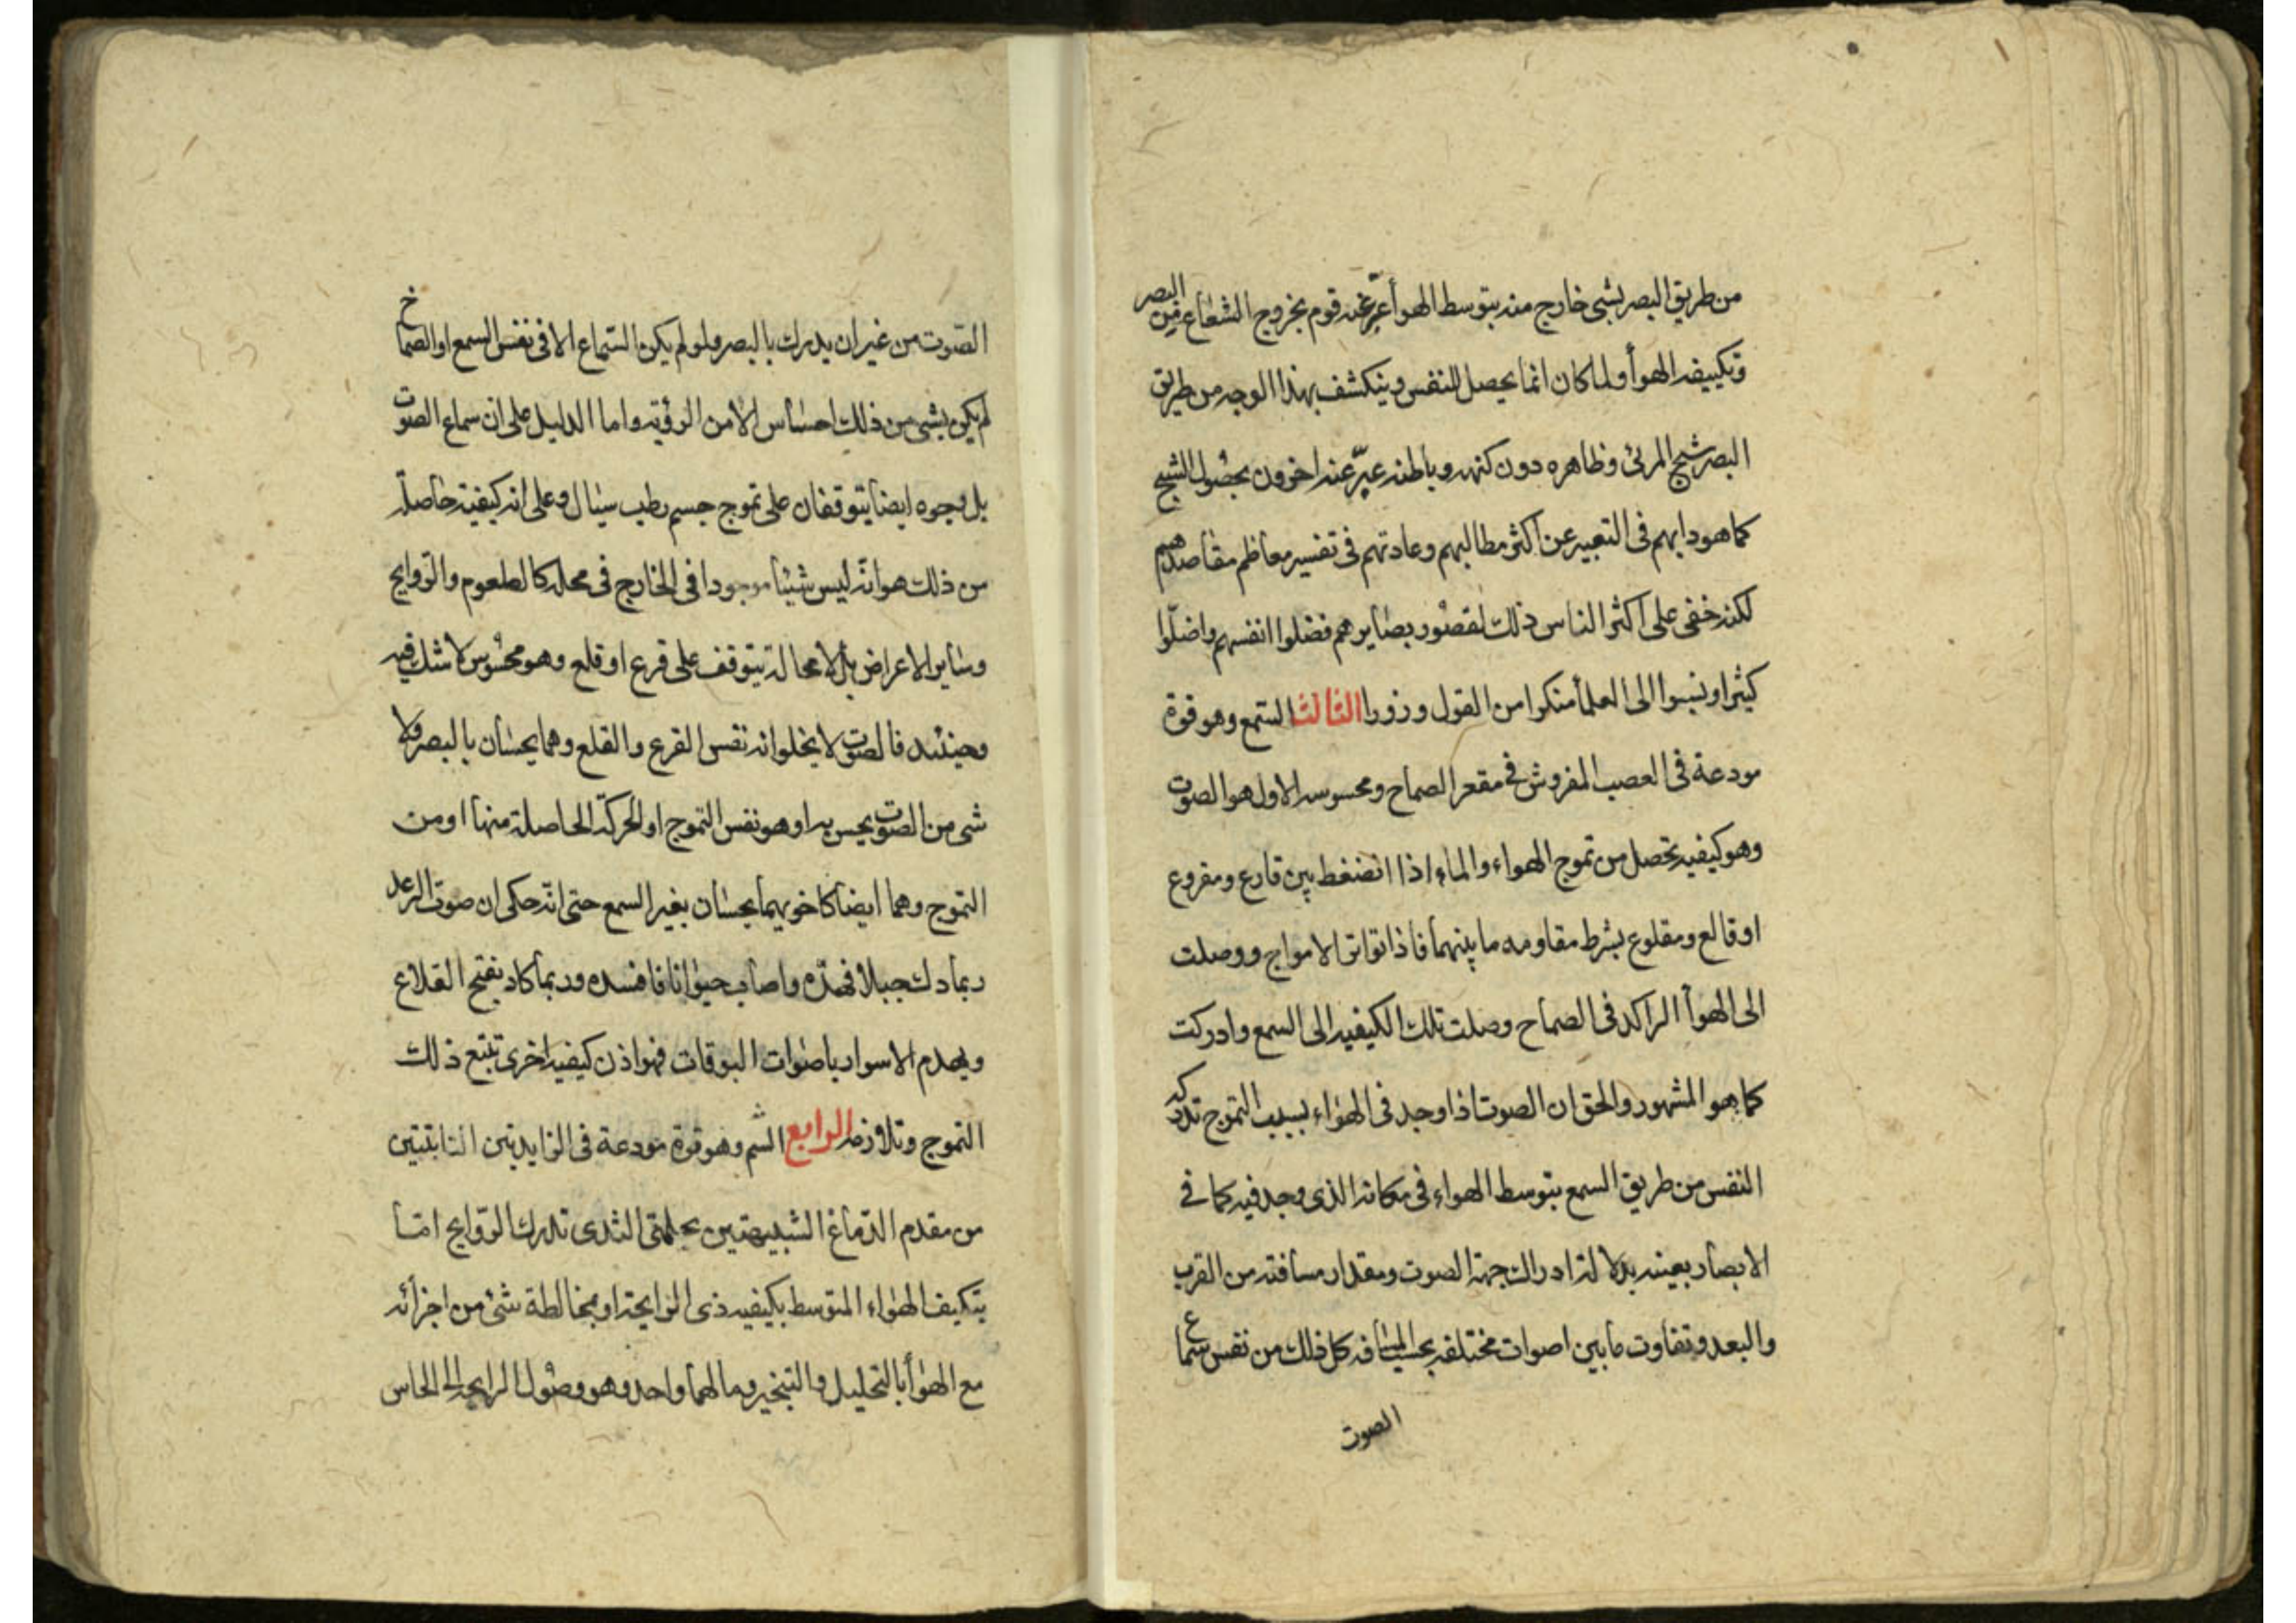 من طريق البصر بشى خارج منه بتوسط الهوأ عبّر عنه قوم بخروج الشعاع من البصر
وتكييفه الهوأ ولما كان انما يحصل للنفس وينكشف بهذا الوجه من طريق
البصر شبح المرئى وظاهره دون كنهه وباطنه عبّر عنه اخرون بحصول الشبح
كما هو دابهم فى التعبير عن اكثر مطالبهم وعادتهم فى تفسير معاظم مقاصدهم
لكنه خفى على اكثر الناس ذلك لقصور بصايرهم فضلوا انفسهم واضلّوا
كثيرا ونسبوا الى العلمأ منكرا من القول وزورا الثالث السّمع وهو قوة
مودعة فى العصب المفروش فى مقعر الصماخ ومحسوسه الاول هو الصوت
وهو كيفيه تحصل من تموج الهواء والماء اذا انضغط بين قارع ومقروع
او قالع ومقلوع بشرط مقاومه ما بينهما فاذا تواتر الامواج ووصلت
الى الهوأ الراكد فى الصماخ وصلت تلك الكيفيه الى السمع وادركت
كما هو المشهور والحق ان الصوت اذا وجد فى الهواء بسبب التموج تدركه
النفس من طريق السمع بتوسط الهواء فى مكانه الذى وجد فيه كما فى
الابصار بعينه بدلالة ادراك جهة الصوت ومقدار مسافته من القرب
والبعد وتفاوت مابين اصوات مختلفه بحسب المسافه كل ذلك من نفس سماع
الصوت
الصّوت من غير ان يدرك بالبصر ولو لم يكن السّماع الا فى نفس السمع او الصماخ
لم يكن بشى من ذلك احساس الا من الرؤية واما الدليل على ان سماع الصوت
بل وجوه ايضا يتوقفان على تموج جسم رطب سيال وعلى انه كيفية حاصلة
من ذلك هو انّه ليس شيئا موجودا فى الخارج فى محله كالطعوم والرّوايح
وساير الاعراض بل لا محالة يتوقف على قرع او قلع وهو محسوس لا شك فيه
وحينئد فالصوت لا يخلو انه نفس القرع والقلع وهما يحسان بالبصر ولا
شى من الصّوت يحس به او هو نفس التموج او الحركة الحاصلة منها او من
التموج وهما ايضا كاخويهما يحسان بغير السمع حتى انّه حكى ان صوت الرعد
ربما دك جبلا فهدّه واصاب حيوانا فافسده وربما كاد يفتح القلاع
ويهدم الاسوار باصوات البوقات فهو اذن كيفيه اخرى تتبع ذلك
التموج وتلازمه الرابع الشّم وهو قوة مودعة فى الزايدتين النابتتين
من مقدم الدّماغ الشبيهتين بحلمتى الثدى تدرك الرّوايح امّا
بتكيف الهواء المتوسط بكيفيه ذى الرايحة او بمخالطة شئ من اجزائه
مع الهوأ بالتحليل والتبخير ومالهما واحد وهو وصول الرايحه الى الحاس